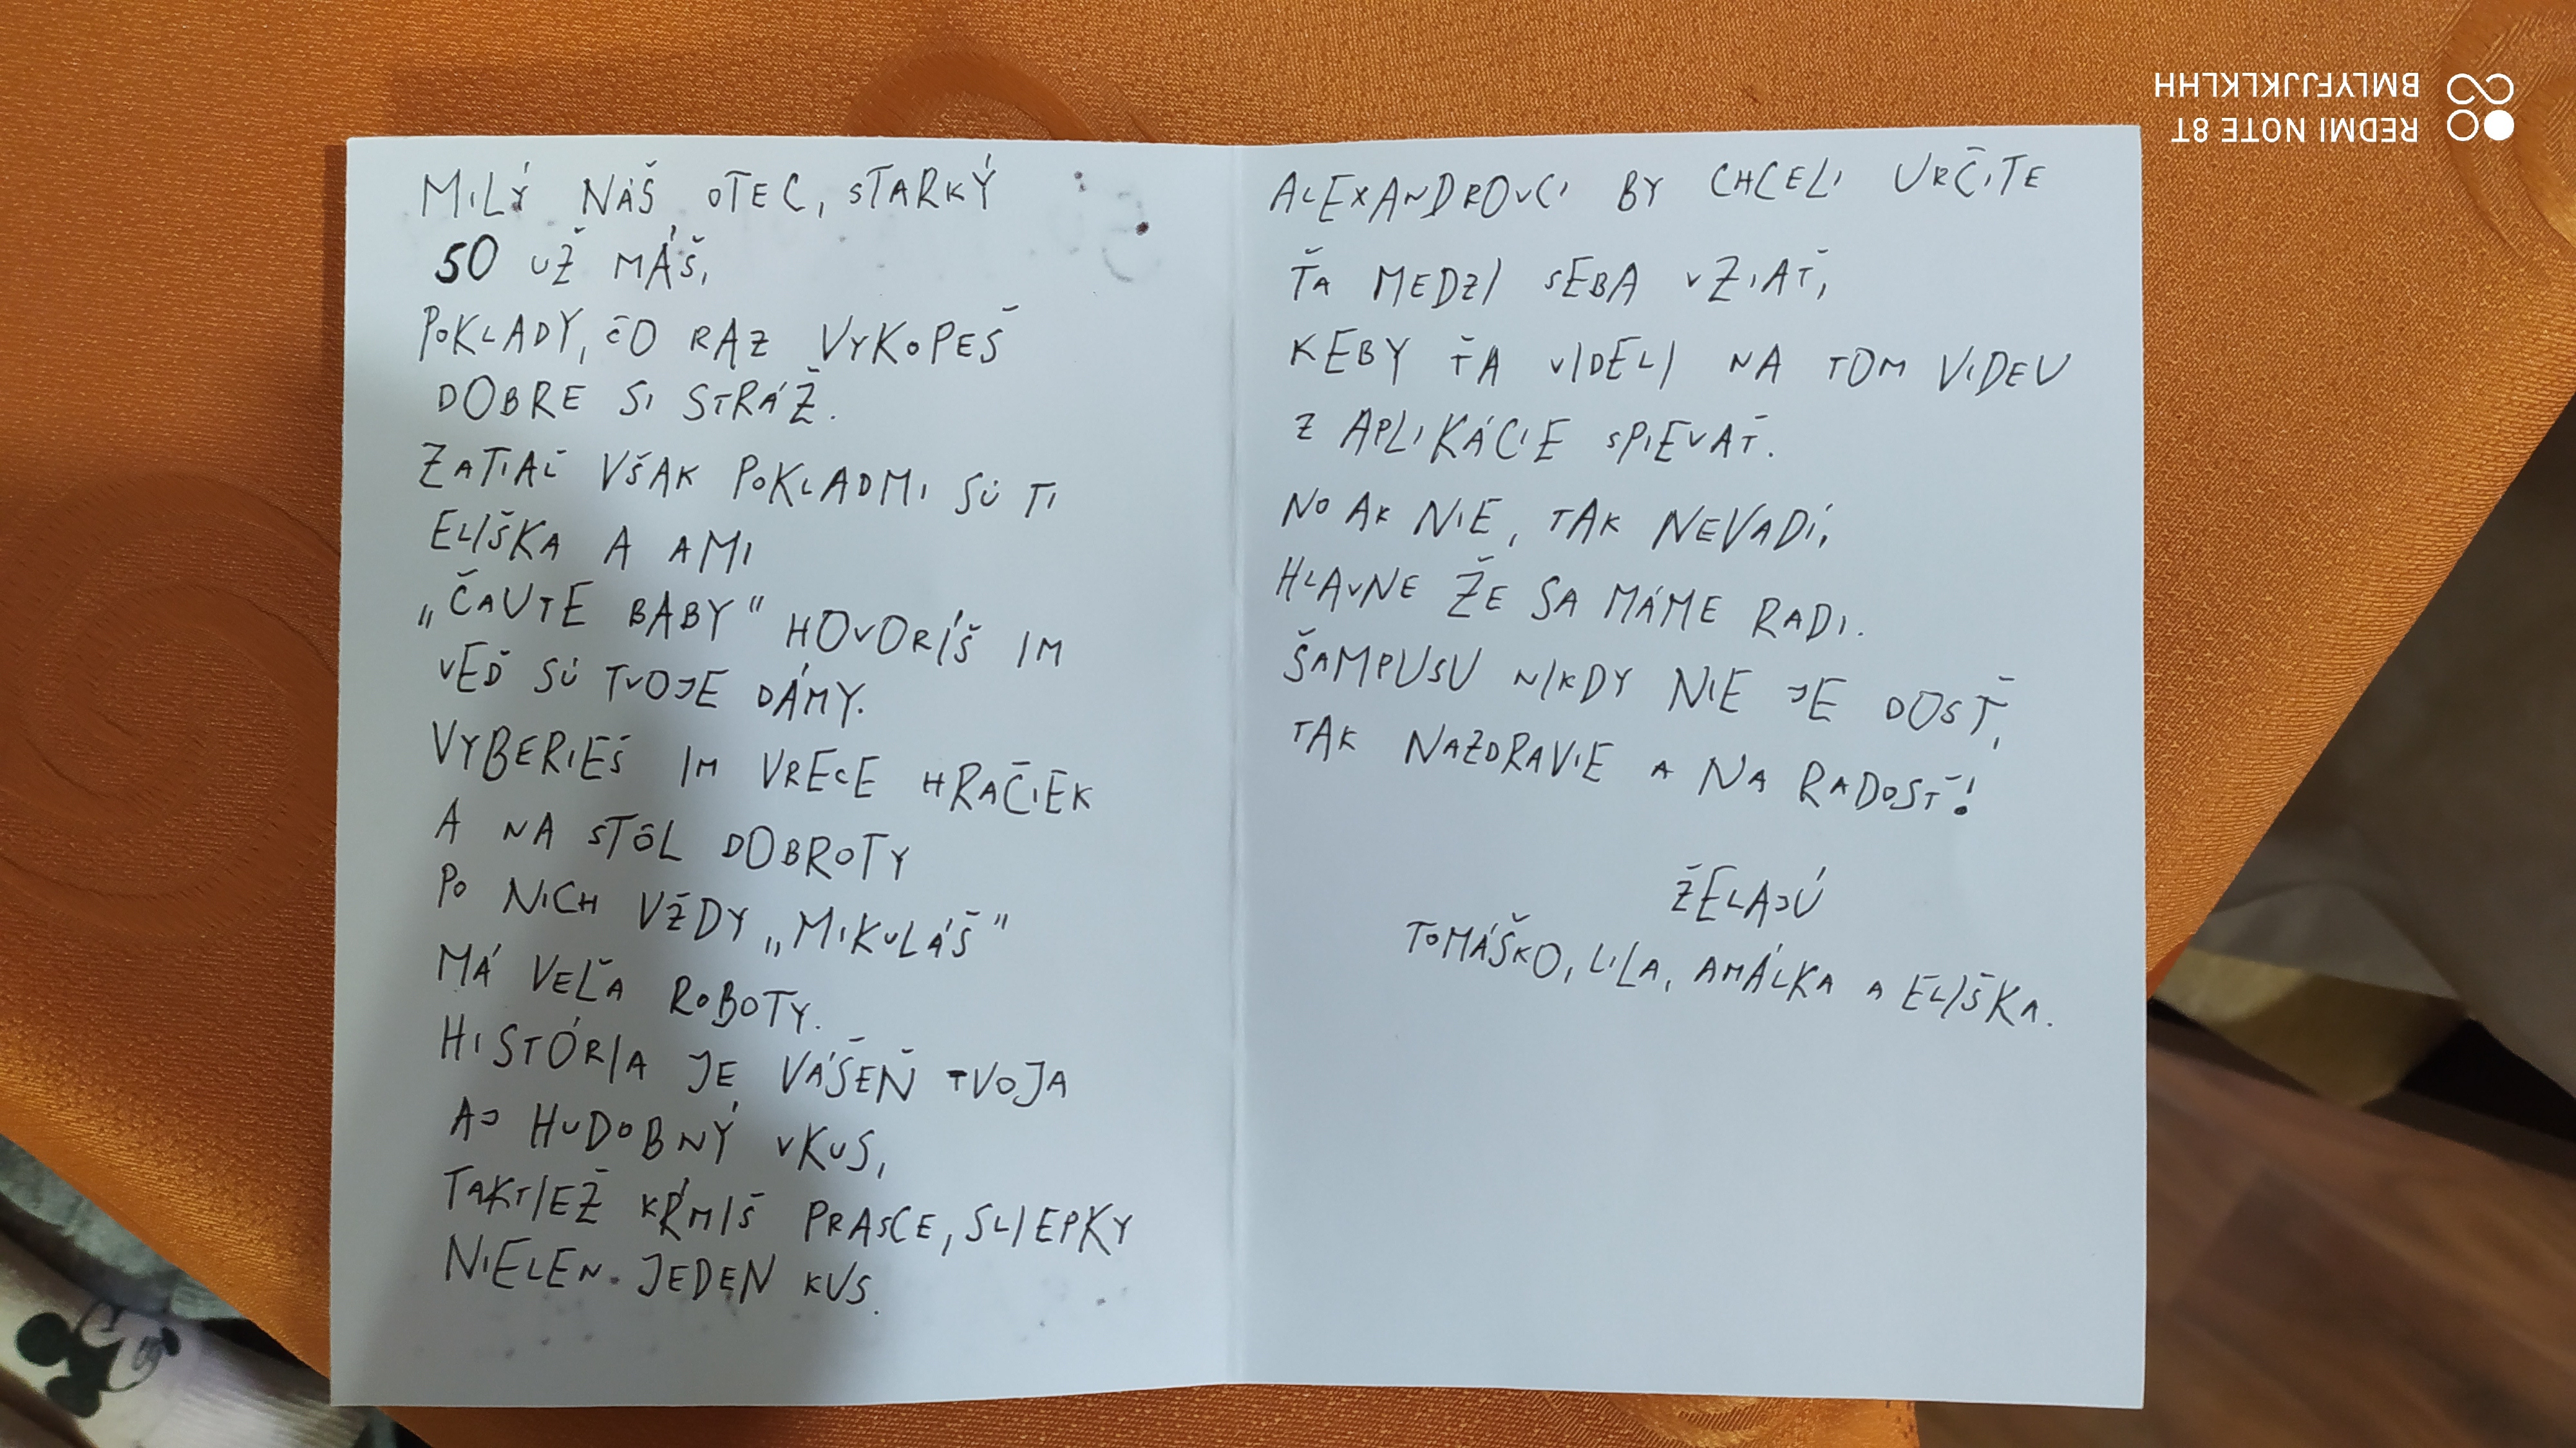 MILÝ NÁŠ OTEC, STARKÝ
50 UŽ MÁŠ,
POKLADY, ČO RAZ VYKOPEŠ
DOBRE SI STRÁŽ.
ZATIAĽ VŠAK POKLADMI SÚ TI
ELIŠKA A AMI
„ČAUTE BABY" HOVORÍŠ IM
VEĎ SÚ TVOJE DÁMY.
VYBERIEŠ IM VRECE HRAČIEK
A NA STÔL DOBROTY
PO NICH VŽDY „MIKULÁŠ"
MÁ VEĽA ROBOTY.
HISTÓRIA JE VÁŠEŇ TVOJA
AJ HUDOBNÝ VKUS,
TAKTIEŽ KŔMIŠ PRASCE, SLIEPKY
NIELEN JEDEN KUS.
ALEXANDROVCI BY CHCELI URČITE
ŤA MEDZI SEBA VZIAŤ,
KEBY ŤA VIDELI NA TOM VIDEU
Z APLIKÁCIE SPIEVAŤ.
NO AK NIE, TAK NEVADÍ,
HLAVNE ŽE SA MÁME RADI.
ŠAMPUSU NIKDY NIE JE DOSŤ,
TAK NAZDRAVIE A NA RADOSŤ!
ŽELAJÚ
TOMÁŠKO, LILA, AMÁLKA A ELIŠKA.
REDMI NOTE 8T
BMLYFJJKLKLHH